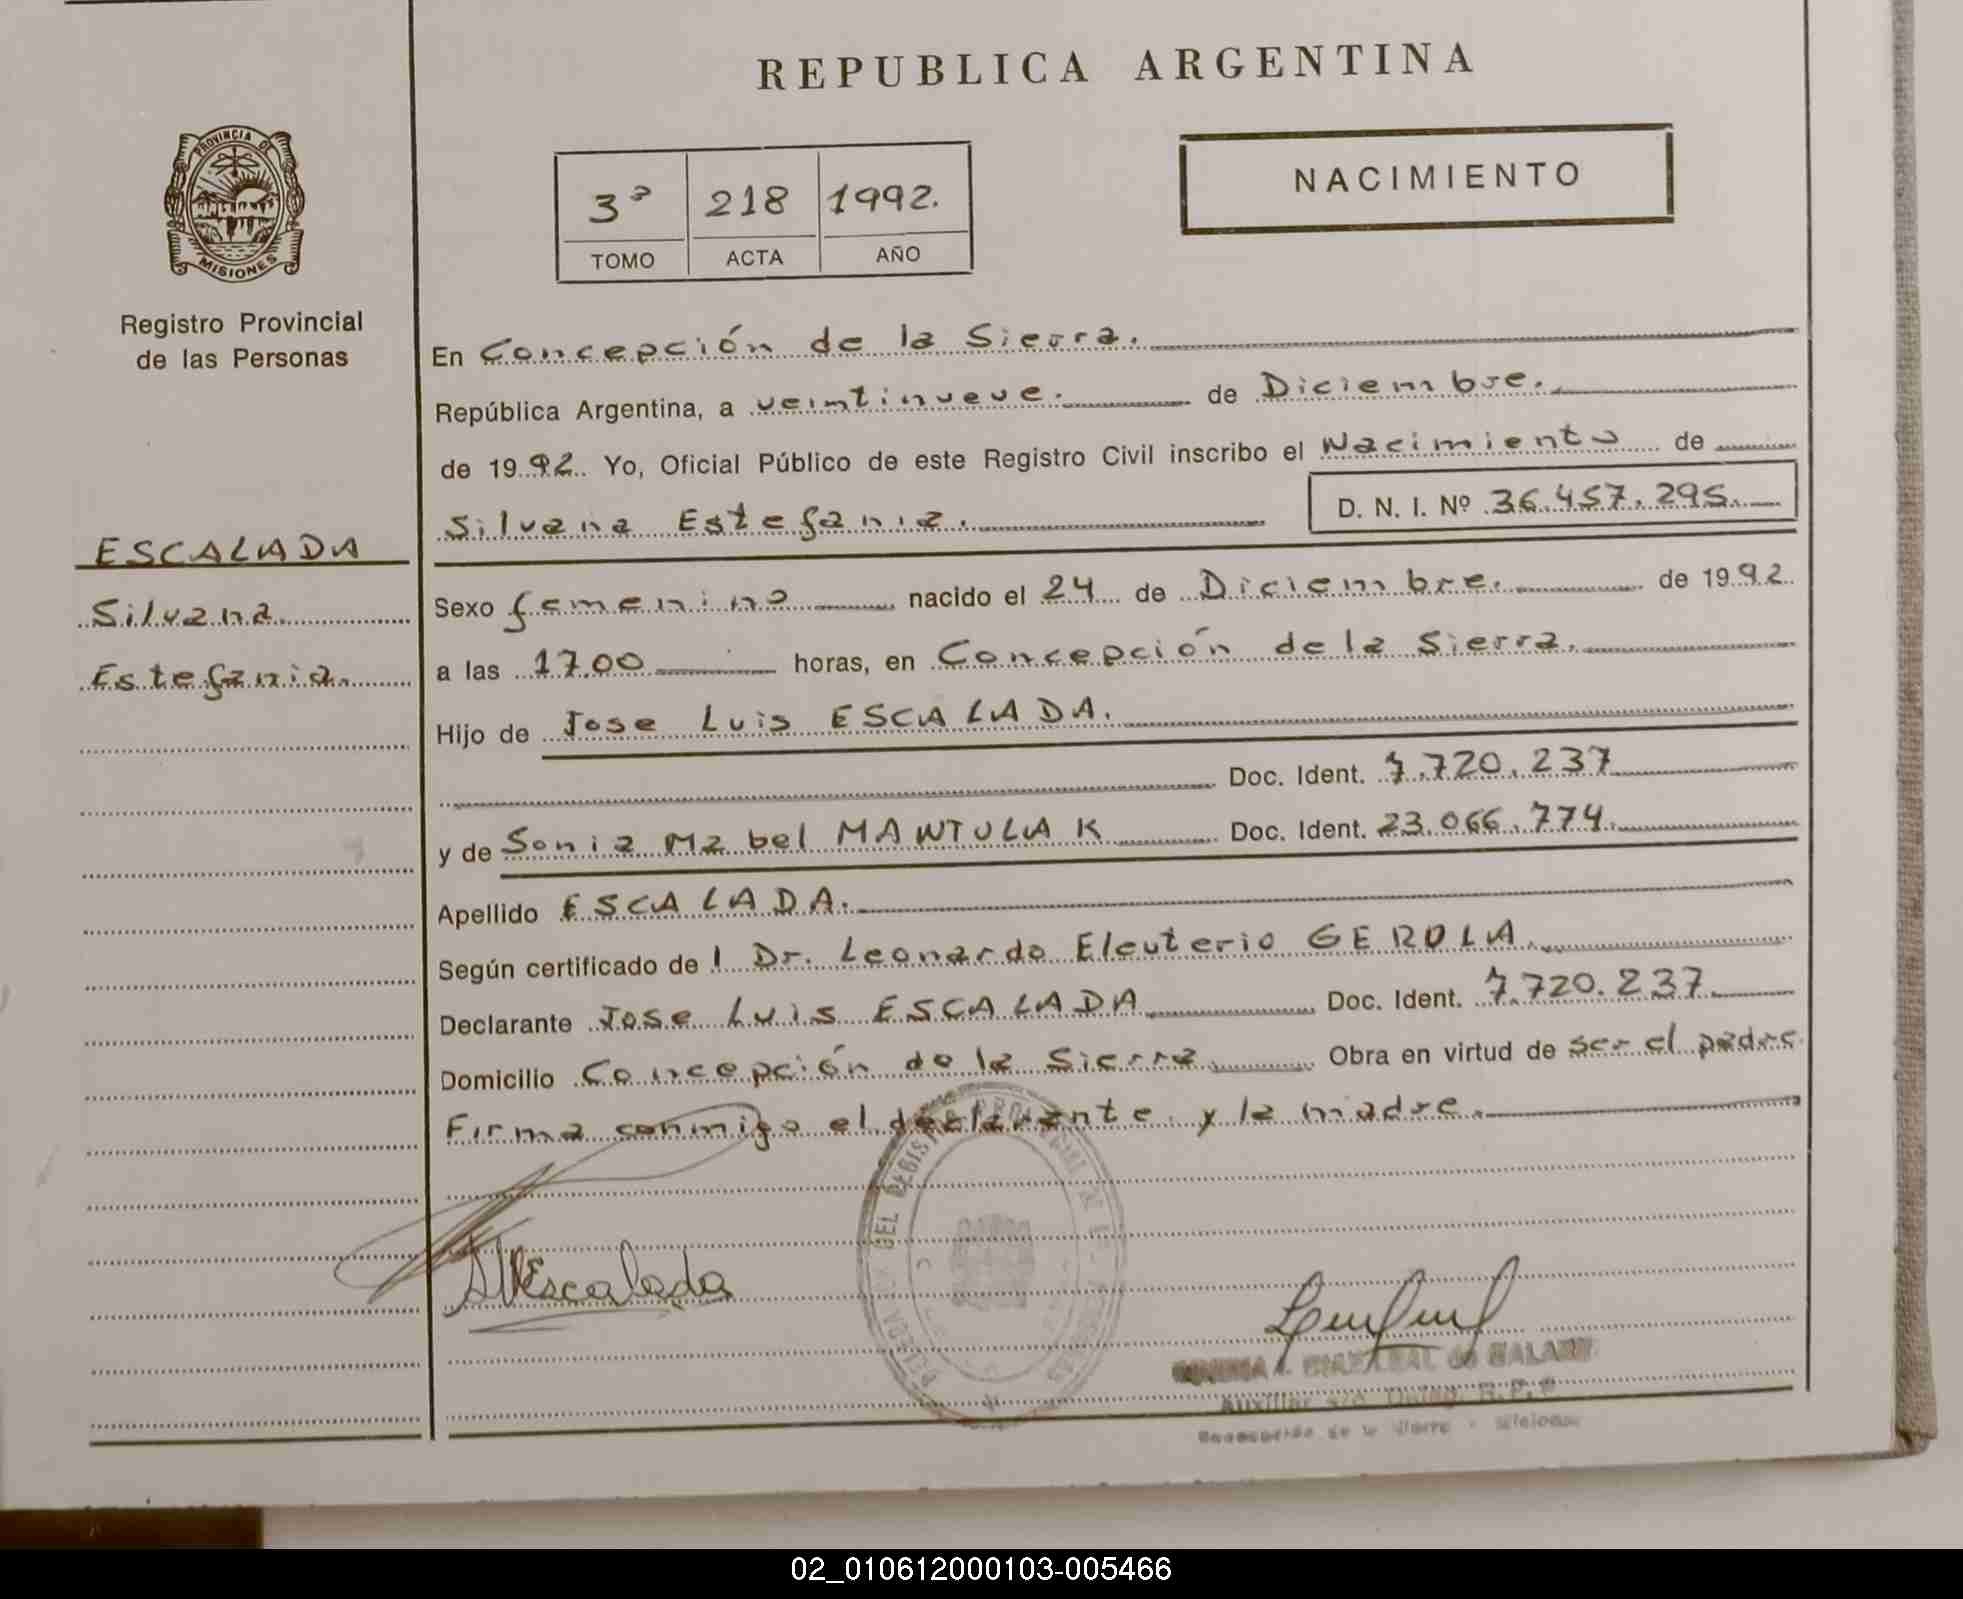 REPUBLICA ARGENTINA
PROVINCIA DE
MISIONES
Registro Provincial
de las Personas
3º 218 1992.
TOMO ACTA AÑO
NACIMIENTO
En Concepción de la Sierra.
República Argentina, a veintinueve. de Diciembre.
de 1992. Yo, Oficial Público de este Registro Civil inscribo el Nacimiento de
Silvana Estefania. D. N. I. Nº 36.457.295.
ESCALADA
Silvana
Estefania.
Sexo femenino nacido el 24 de Diciembre. de 1992
a las 17.00 horas, en Concepción de la Sierra.
Hijo de Jose Luis ESCALADA.
Doc. Ident. 7.720.237
y de Sonia Mabel MANTULAK Doc. Ident. 23.066.774.
Apellido ESCALADA.
Según certificado de l Dr. Leonardo Eleuterio GEROLA.
Declarante Jose Luis ESCALADA Doc. Ident. 7.720.237.
Domicilio Concepción de la Sierra. Obra en virtud de ser el padre
Firma conmigo el declarante y la madre.
Escalada
de GALARZ
Auxiliar R.P.P
02_010612000103-005466